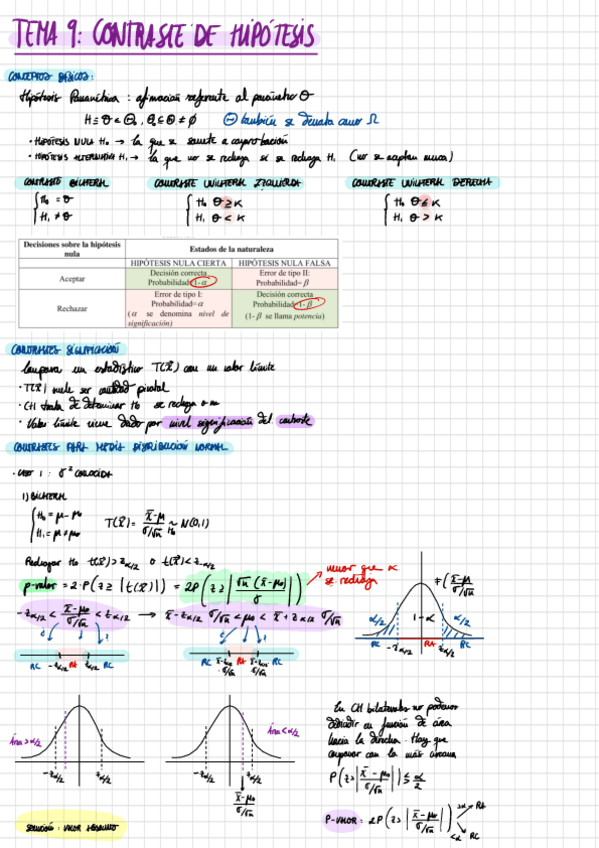 TEMA 9: CONTRASTE DE HIPÓTESIS
CONCEPTOS BÁSICOS:
Hipótesis Paramétrica: afirmación referente al parámetro θ
H ≡ θ ∈ Θ₀, Θ₀ ⊆ Θ ≠ ∅ Θ también se denota como Ω
· HIPÓTESIS NULA H₀ → la que se somete a comprobación
· HIPÓTESIS ALTERNATIVA H₁ → la que no se rechaza si se rechaza H₁ (no se aceptan nunca)
CONTRASTE BILATERAL CONTRASTE UNILATERAL IZQUIERDA CONTRASTE UNILATERAL DERECHA
H₀ θ = K H₀ θ ≥ K H₀ θ ≤ K
H₁ θ ≠ K H₁ θ < K H₁ θ > K
Decisiones sobre la hipótesis nula Estados de la naturaleza
HIPÓTESIS NULA CIERTA HIPÓTESIS NULA FALSA
Aceptar Decisión correcta Probabilidad=1-α Error de tipo II: Probabilidad= β
Rechazar Error de tipo I: Probabilidad= α (α se denomina nivel de significación) Decisión correcta Probabilidad=1-β (1-β se llama potencia)
CONTRASTES SIGNIFICACIÓN
Compara un estadístico T(x⃗) con un valor límite
· T(x⃗) suele ser cantidad pivotal
· CH trata de determinar H₀ se rechaza o no
· Valor límite viene dado por nivel significación del contraste
CONTRASTES PARA MEDIA DISTRIBUCIÓN NORMAL
· CASO 1: σ² CONOCIDA
1) BILATERAL
H₀ = μ = μ₀
H₁ = μ ≠ μ₀
T(x⃗) = (x̄-μ)/(σ/√n) ~ N(0,1)
H₀
Rechazar H₀ t(x⃗) > z α/2 o t(x⃗) < -z α/2
p-valor = 2·P(z ≥ |t(x⃗)|) = 2P(z ≥ |√n (x̄-μ₀)/σ|)
menor que α
se rechaza
-z α/2 < (x̄-μ₀)/(σ/√n) < z α/2 → x̄ - z α/2 σ/√n < μ₀ < x̄ + z α/2 σ/√n
RC -z α/2 RA z α/2 RC
RC RA RC
α/2 1-α α/2
RC -z α/2 RA z α/2 RC
Área > α/2
-z α/2 z α/2
Área < α/2
-z α/2 z α/2
(x̄-μ₀)/(σ/√n)
En CH bilaterales no podemos
decidir en función de área
hacia la derecha. Hay que
comparar con la más cercana
P(z > |(x̄-μ₀)/(σ/√n)|) ≤ α/2
P-VALOR = 2P(z > |(x̄-μ₀)/(σ/√n)|) >α RA
<α RC
SOLUCIÓN: VALOR ABSOLUTO